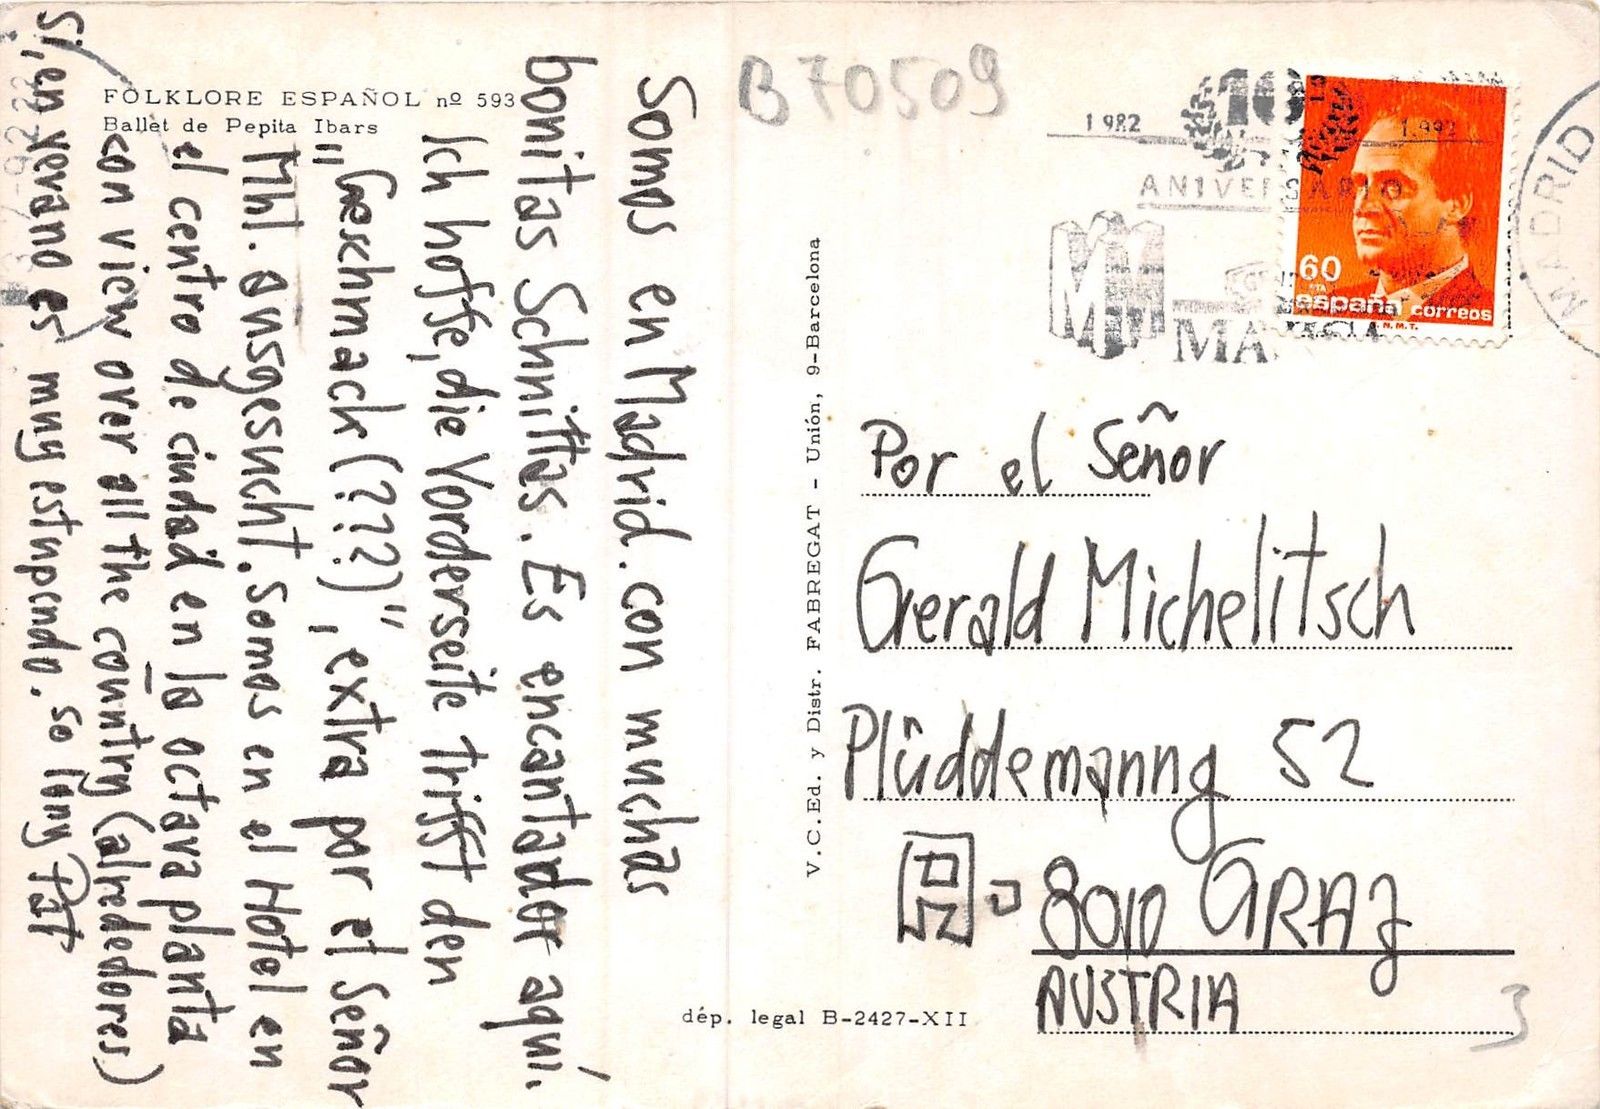 FOLKLORE ESPAÑOL nº 593
Ballet de Pepita Ibars
Somos en Madrid. con muchas
bonitas Schnittas. Es encantador aquí.
Ich hoffe, die Vorderseite trifft den
"Geschmack (???)", extra por el Señor
Mhl. ausgesucht. Somos en el Hotel en
el centro de ciudad en la octava planta
con view over all the country (alrededores)
Sí, en verano es muy estupendo. So long Pff
V.C.Ed. y Distr. FABREGAT - Unión, 9-Barcelona
B70509
1982 1992
10
ANIVERSARIO
MADRID
60
PTA
españa correos
F.N.M.T.
Por el Señor
Gerald Michelitsch
Plüddemanng 52
8010 GRAZ
AUSTRIA
dép. legal B-2427-XII
3